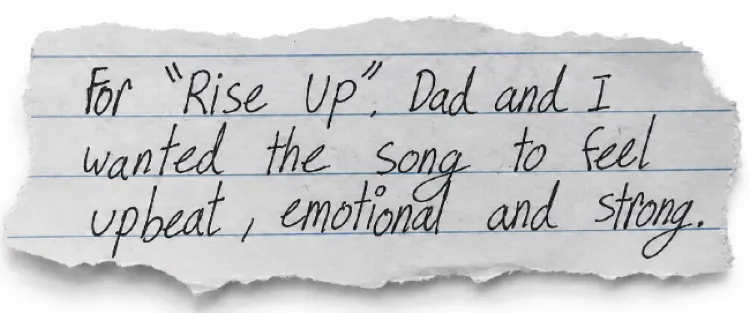 For "Rise Up". Dad and I
wanted the song to feel
upbeat, emotional and strong.